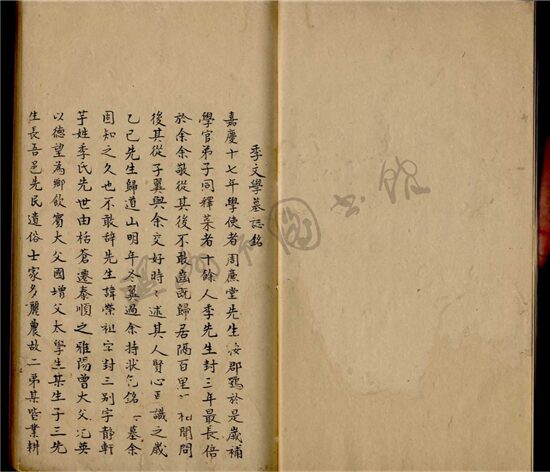 季文學墓誌銘
嘉慶十七年學使者周廉堂先生 郡 於是歲補
學官弟子同釋菜者十餘人季先生封三年最長倍
於余余敬從其後不敢齒既歸居隔百里 聞問
後其從子翼與余交好時 述其人賢心 識之歲
乙巳先生歸道山明年冬翼過余持狀乞銘 墓余
固知之久也不敢辭先生諱榮祖字封三別字靜軒
芋姓季氏先世由栝蒼遷泰順之雅陽曾大父 英
以德望為鄉飲賓大父國增父太學生某生子三先
生長吾邑先民遺俗士家多麗農故二弟某皆業耕